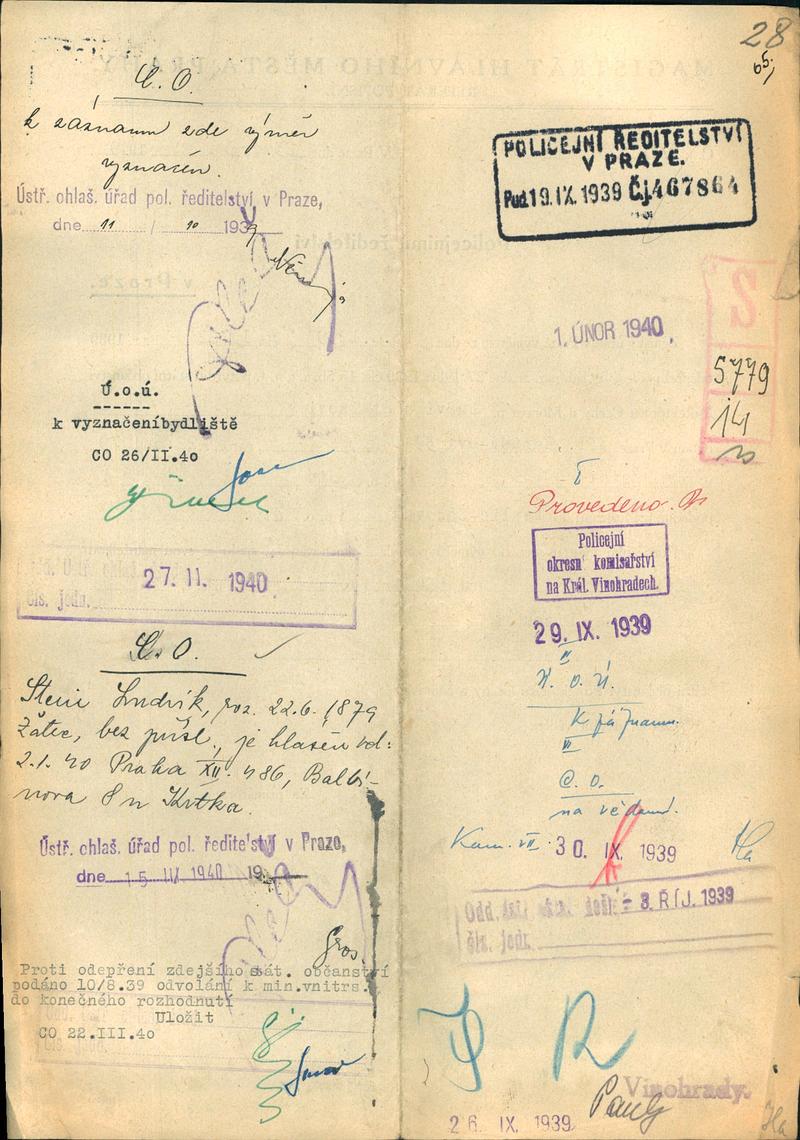 C. O.
k záznamu zde výměr
vyznačen.
Ústř. ohlaš. úřad pol. ředitelství v Praze,
dne 11 / 10 1939
Ú.o.ú.
k vyznačeníbydliště
CO 26/II.4o
27. II. 1940
čís. jedn.
C. O.
Stein Ludvík, roz. 22.6.1879
Žatec, bez přísl., je hlášen od:
2.1.40 Praha XII. 486, Balbí-
nova 8 u Krtka.
Ústř. ohlaš. úřad pol. ředitelství v Praze,
dne 15 III 1940 19
Gros.
Proti odepření zdejšího stát. občanství
podáno 10/8.39 odvolání k min.vnitra.
do konečného rozhodnutí
Uložit
CO 22.III.4o
28
65
POLICEJNÍ ŘEDITELSTVÍ
V PRAZE.
Pod. 19.IX.1939 Čj.467864
1. ÚNOR 1940
S
5779
14
I
Provedeno.
Policejní
okresní komisařství
na Král. Vinohradech.
29. IX. 1939
II
Ú. O. Ú.
K záznamu.
III
C. O.
na vědomí.
Kom. VII. 30. IX. 1939
Odd. došlo - 3. ŘÍJ. 1939
čís. jedn.
R
Vinohrady.
26. IX. 1939